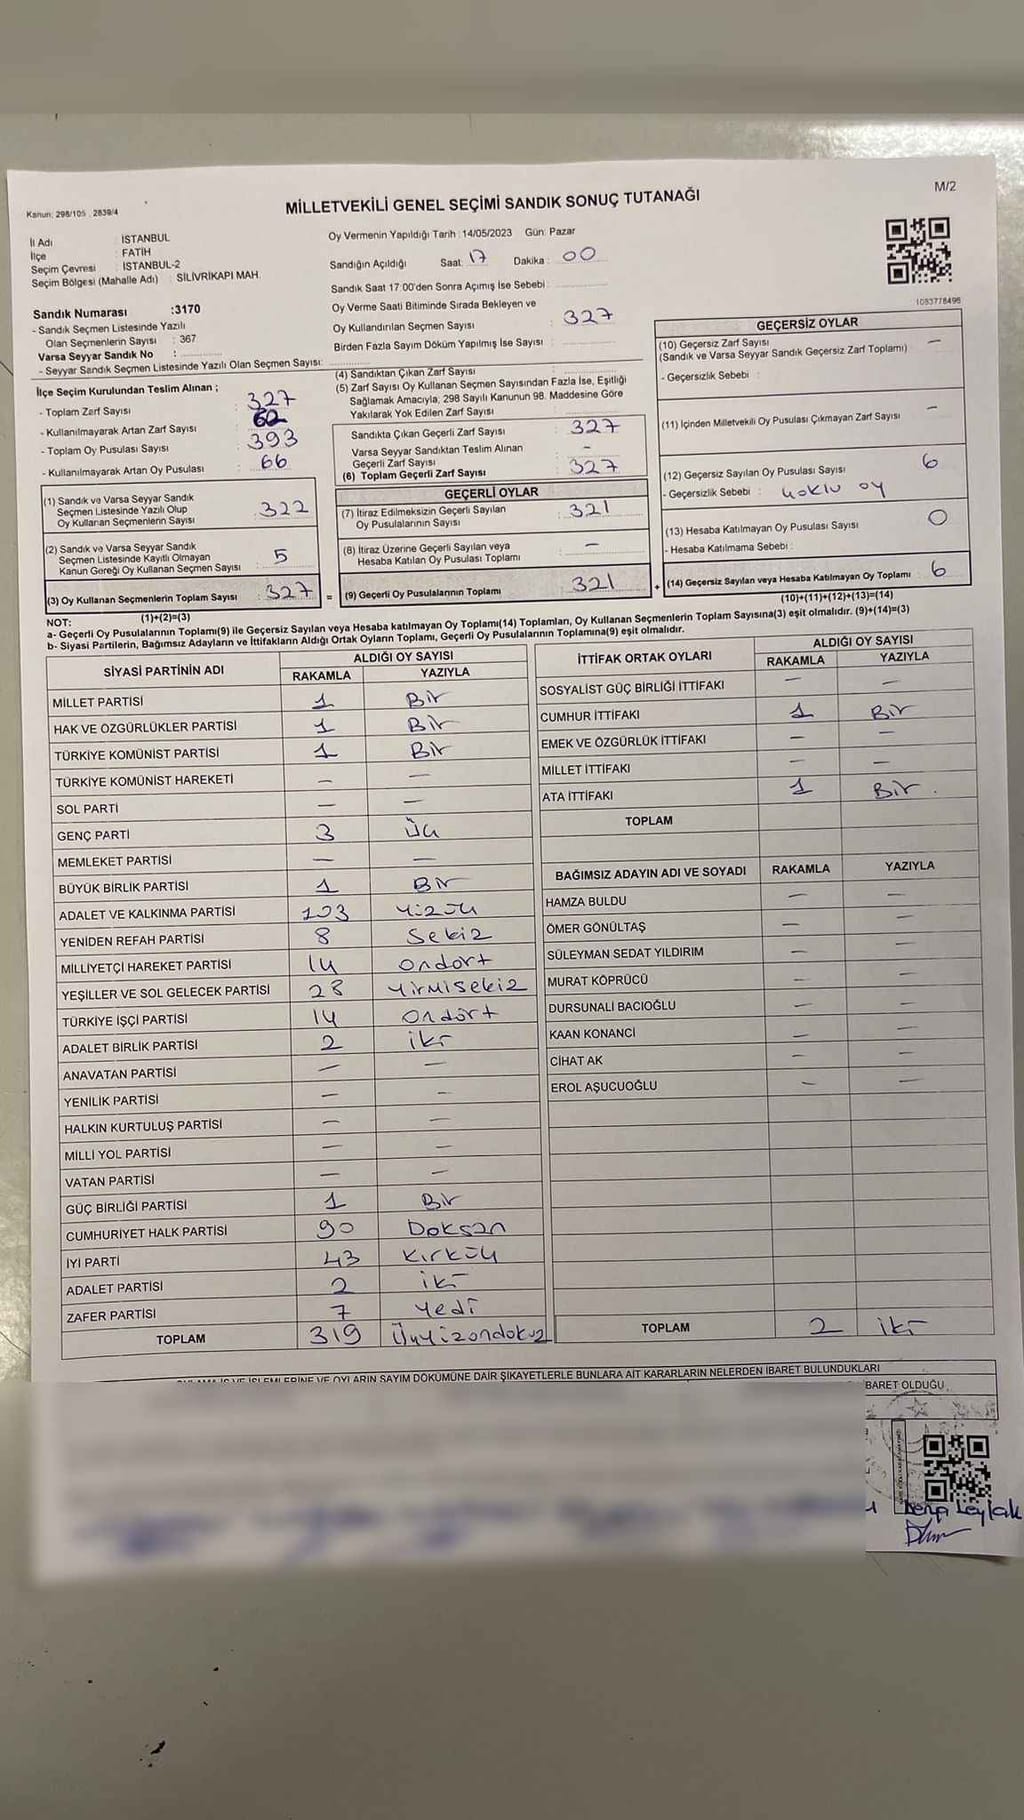 M/2
Kanun: 298/105 , 2839/4
MİLLETVEKİLİ GENEL SEÇİMİ SANDIK SONUÇ TUTANAĞI
İl Adı : İSTANBUL
İlçe : FATİH
Seçim Çevresi : İSTANBUL-2
Seçim Bölgesi (Mahalle Adı) : SİLİVRİKAPI MAH.
Oy Vermenin Yapıldığı Tarih : 14/05/2023 Gün: Pazar
Sandığın Açıldığı Saat: 17 Dakika : 00
Sandık Saat 17:00'den Sonra Açımış İse Sebebi :
Oy Verme Saati Bitiminde Sırada Bekleyen ve
Oy Kullandırılan Seçmen Sayısı : 327
Birden Fazla Sayım Döküm Yapılmış İse Sayısı :
1083778496
Sandık Numarası :3170
- Sandık Seçmen Listesinde Yazılı
Olan Seçmenlerin Sayısı : 367
Varsa Seyyar Sandık No :
- Seyyar Sandık Seçmen Listesinde Yazılı Olan Seçmen Sayısı:
İlçe Seçim Kurulundan Teslim Alınan ;
- Toplam Zarf Sayısı : 327
- Kullanılmayarak Artan Zarf Sayısı :
- Toplam Oy Pusulası Sayısı : 393
- Kullanılmayarak Artan Oy Pusulası : 66
(1) Sandık ve Varsa Seyyar Sandık
Seçmen Listesinde Yazılı Olup
Oy Kullanan Seçmenlerin Sayısı : 322
(2) Sandık ve Varsa Seyyar Sandık
Seçmen Listesinde Kayıtlı Olmayan
Kanun Gereği Oy Kullanan Seçmen Sayısı : 5
(3) Oy Kullanan Seçmenlerin Toplam Sayısı : 327 =
(1)+(2)=(3)
(4) Sandıktan Çıkan Zarf Sayısı :
(5) Zarf Sayısı Oy Kullanan Seçmen Sayısından Fazla İse, Eşitliği
Sağlamak Amacıyla, 298 Sayılı Kanunun 98. Maddesine Göre
Yakılarak Yok Edilen Zarf Sayısı :
Sandıkta Çıkan Geçerli Zarf Sayısı : 327
Varsa Seyyar Sandıktan Teslim Alınan
Geçerli Zarf Sayısı : –
(6) Toplam Geçerli Zarf Sayısı : 327
GEÇERLİ OYLAR
(7) İtiraz Edilmeksizin Geçerli Sayılan
Oy Pusulalarının Sayısı : 321
(8) İtiraz Üzerine Geçerli Sayılan veya
Hesaba Katılan Oy Pusulası Toplamı : –
(9) Geçerli Oy Pusulalarının Toplamı : 321 +
GEÇERSİZ OYLAR
(10) Geçersiz Zarf Sayısı : –
(Sandık ve Varsa Seyyar Sandık Geçersiz Zarf Toplamı)
- Geçersizlik Sebebi :
(11) İçinden Milletvekili Oy Pusulası Çıkmayan Zarf Sayısı : –
(12) Geçersiz Sayılan Oy Pusulası Sayısı : 6
- Geçersizlik Sebebi : oy
(13) Hesaba Katılmayan Oy Pusulası Sayısı : 0
- Hesaba Katılmama Sebebi :
(14) Geçersiz Sayılan veya Hesaba Katılmayan Oy Toplamı : 6
(10)+(11)+(12)+(13)=(14)
NOT:
a- Geçerli Oy Pusulalarının Toplamı(9) ile Geçersiz Sayılan veya Hesaba katılmayan Oy Toplamı(14) Toplamları, Oy Kullanan Seçmenlerin Toplam Sayısına(3) eşit olmalıdır. (9)+(14)=(3)
b- Siyasi Partilerin, Bağımsız Adayların ve İttifakların Aldığı Ortak Oyların Toplamı, Geçerli Oy Pusulalarının Toplamına(9) eşit olmalıdır.
SİYASİ PARTİNİN ADI ALDIĞI OY SAYISI
RAKAMLA YAZIYLA
MİLLET PARTİSİ 1 Bir
HAK VE ÖZGÜRLÜKLER PARTİSİ 1 Bir
TÜRKİYE KOMÜNİST PARTİSİ 1 Bir
TÜRKİYE KOMÜNİST HAREKETİ – –
SOL PARTİ – –
GENÇ PARTİ 3 Üç
MEMLEKET PARTİSİ – –
BÜYÜK BİRLİK PARTİSİ 1 Bir
ADALET VE KALKINMA PARTİSİ 103 Yüzüç
YENİDEN REFAH PARTİSİ 8 Sekiz
MİLLİYETÇİ HAREKET PARTİSİ 14 ondört
YEŞİLLER VE SOL GELECEK PARTİSİ 28 Yirmisekiz
TÜRKİYE İŞÇİ PARTİSİ 14 ondört
ADALET BİRLİK PARTİSİ 2 iki
ANAVATAN PARTİSİ – –
YENİLİK PARTİSİ – –
HALKIN KURTULUŞ PARTİSİ – –
MİLLİ YOL PARTİSİ – –
VATAN PARTİSİ – –
GÜÇ BİRLİĞİ PARTİSİ 1 Bir
CUMHURİYET HALK PARTİSİ 90 Doksan
İYİ PARTİ 43 Kırküç
ADALET PARTİSİ 2 iki
ZAFER PARTİSİ 7 Yedi
TOPLAM 319 Üçyüzondokuz
İTTİFAK ORTAK OYLARI ALDIĞI OY SAYISI
RAKAMLA YAZIYLA
SOSYALİST GÜÇ BİRLİĞİ İTTİFAKI – –
CUMHUR İTTİFAKI 1 Bir
EMEK VE ÖZGÜRLÜK İTTİFAKI – –
MİLLET İTTİFAKI – –
ATA İTTİFAKI 1 Bir .
TOPLAM
BAĞIMSIZ ADAYIN ADI VE SOYADI RAKAMLA YAZIYLA
HAMZA BULDU – –
ÖMER GÖNÜLTAŞ – –
SÜLEYMAN SEDAT YILDIRIM – –
MURAT KÖPRÜCÜ – –
DURSUNALİ BACIOĞLU – –
KAAN KONANCİ – –
CİHAT AK – –
EROL AŞUCUOĞLU – –
TOPLAM 2 iki
VE OYLARIN SAYIM DÖKÜMÜNE DAİR ŞİKAYETLERLE BUNLARA AİT KARARLARIN NELERDEN İBARET BULUNDUKLARI
BARET OLDUĞU
Leylak